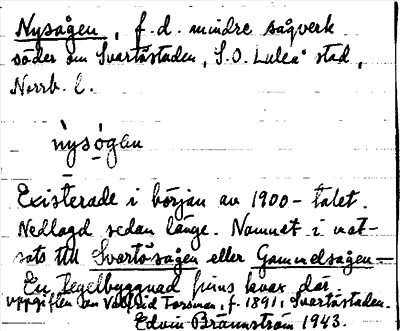 Nysågen, f.d. mindre sågverk
söder om Svartöstaden, S.O. Luleå stad,
Norrb. l.
nysǫgen
Existerade i början av 1900-talet.
Nedlagd sedan länge. Namnet i mot-
sats till Svartösågen eller Gammelsågen-
En tegelbyggnad finns kvar där.
uppgiften av Valfrid f. 1891 i Svartöstaden.
Edvin Brännström 1943.